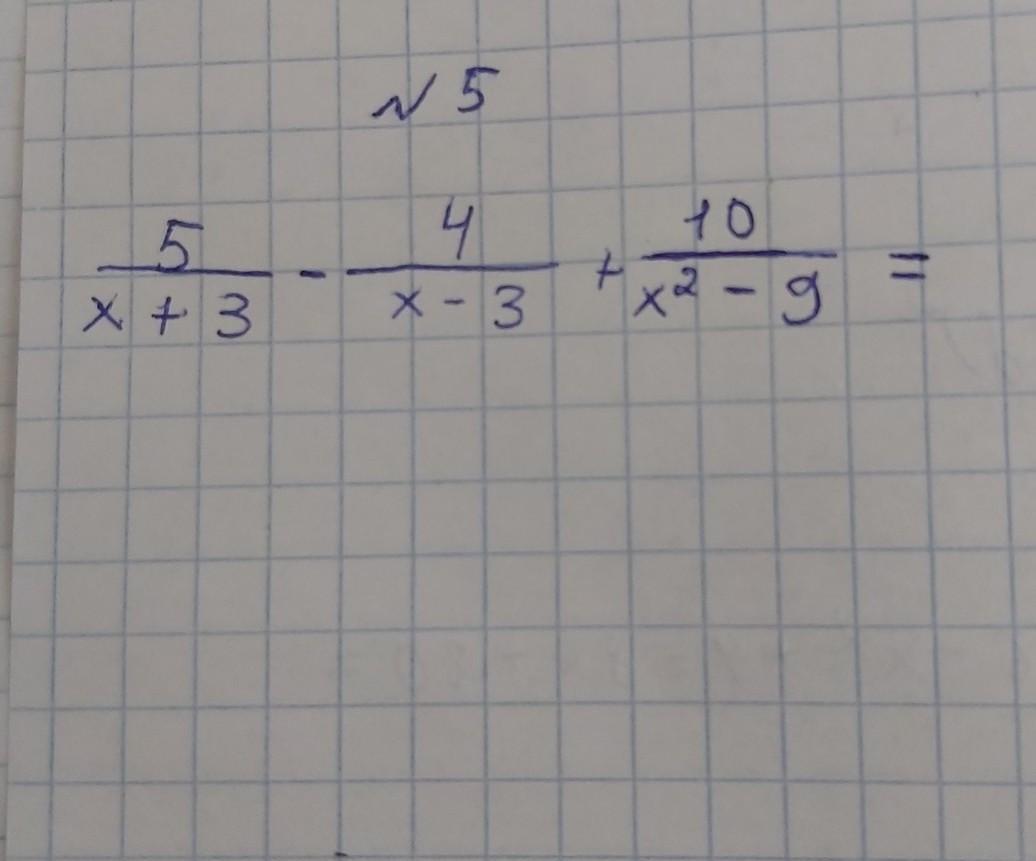 № 5
5/(x + 3) - 4/(x - 3) + 10/(x² - 9) =